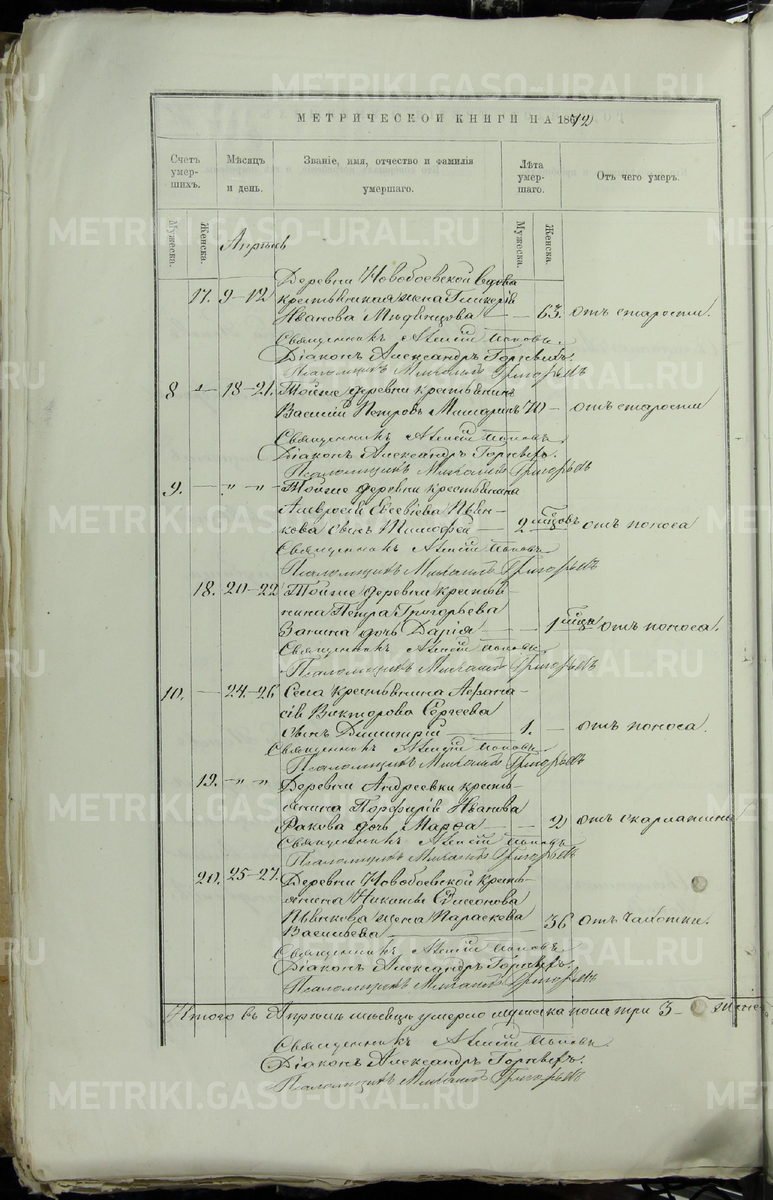 МЕТРИЧЕСКОЙ КНИГИ НА 1872
Счетъ умер- шихъ.
Мѣсяцъ и день.
Званіе, имя, отчество и фамилія умершаго.
Лѣта умер- шаго.
Отъ чего умеръ.
Мужеска. Женска. Мужеска. Женска.
Апрѣль
Деревни Новобоевской вдова
17. 9-12 крестьянская жена Гликерія
Иванова 63. отъ старости.
Священникъ Алексій Поповъ.
Діаконъ Александръ
Псаломщикъ Михаилъ Григорьевъ
8 18-21. Тойже деревни крестьянинъ
Василій Петровъ 70 - отъ старости
Священникъ Алексій Поповъ.
Діаконъ Александръ
Псаломщикъ Михаилъ Григорьевъ
9. - „ - „ - Тойже деревни крестьянина
Амвросія Евсевіева Пьян-
кова сынъ Тимофей - 2 мѣсяцовъ отъ поноса
Священникъ Алексій Поповъ
Псаломщикъ Михаилъ Григорьевъ
18. 20-22 Тойже деревни крестья-
нина Петра Григорьева
Занина дочь Дарія - 1 мѣсяца отъ поноса.
Священникъ Алексій Поповъ
Псаломщикъ Михаилъ Григорьевъ
10. - 24-26 Села крестьянина Афана-
сія Викторова Сергеева
сынъ Димитрій 1. - отъ поноса.
Священникъ Алексій Поповъ
Псаломщикъ Михаилъ Григорьевъ
19. - „ - „ Деревни Андреевки кресть-
янина Порфирія Иванова
Ракова дочь Марфа - 2 отъ скарлатины
Священникъ Алексій Поповъ
Псаломщикъ Михаилъ Григорьевъ
20. 25-27. Деревни Новобоевской кресть-
янина Никиты Симеонова
Пьянкова жена Параскева
Васильева 36 отъ чахотки.
Священникъ Алексій Поповъ
Діаконъ Александръ
Псаломщикъ Михаилъ Григорьевъ
Итого въ Апрѣлѣ мѣсяцѣ умерло мужеска пола три 3 -
Священникъ Алексій Поповъ
Діаконъ Александръ
Псаломщикъ Михаилъ Григорьевъ
METRIKI.GASO-URAL.RU